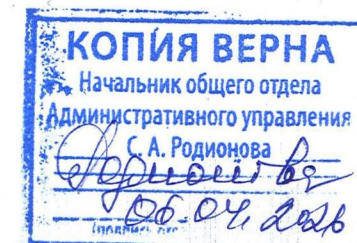 КОПИЯ ВЕРНА
Начальник общего отдела
Административного управления
С. А. Родионова
Родионова
06.04.2026